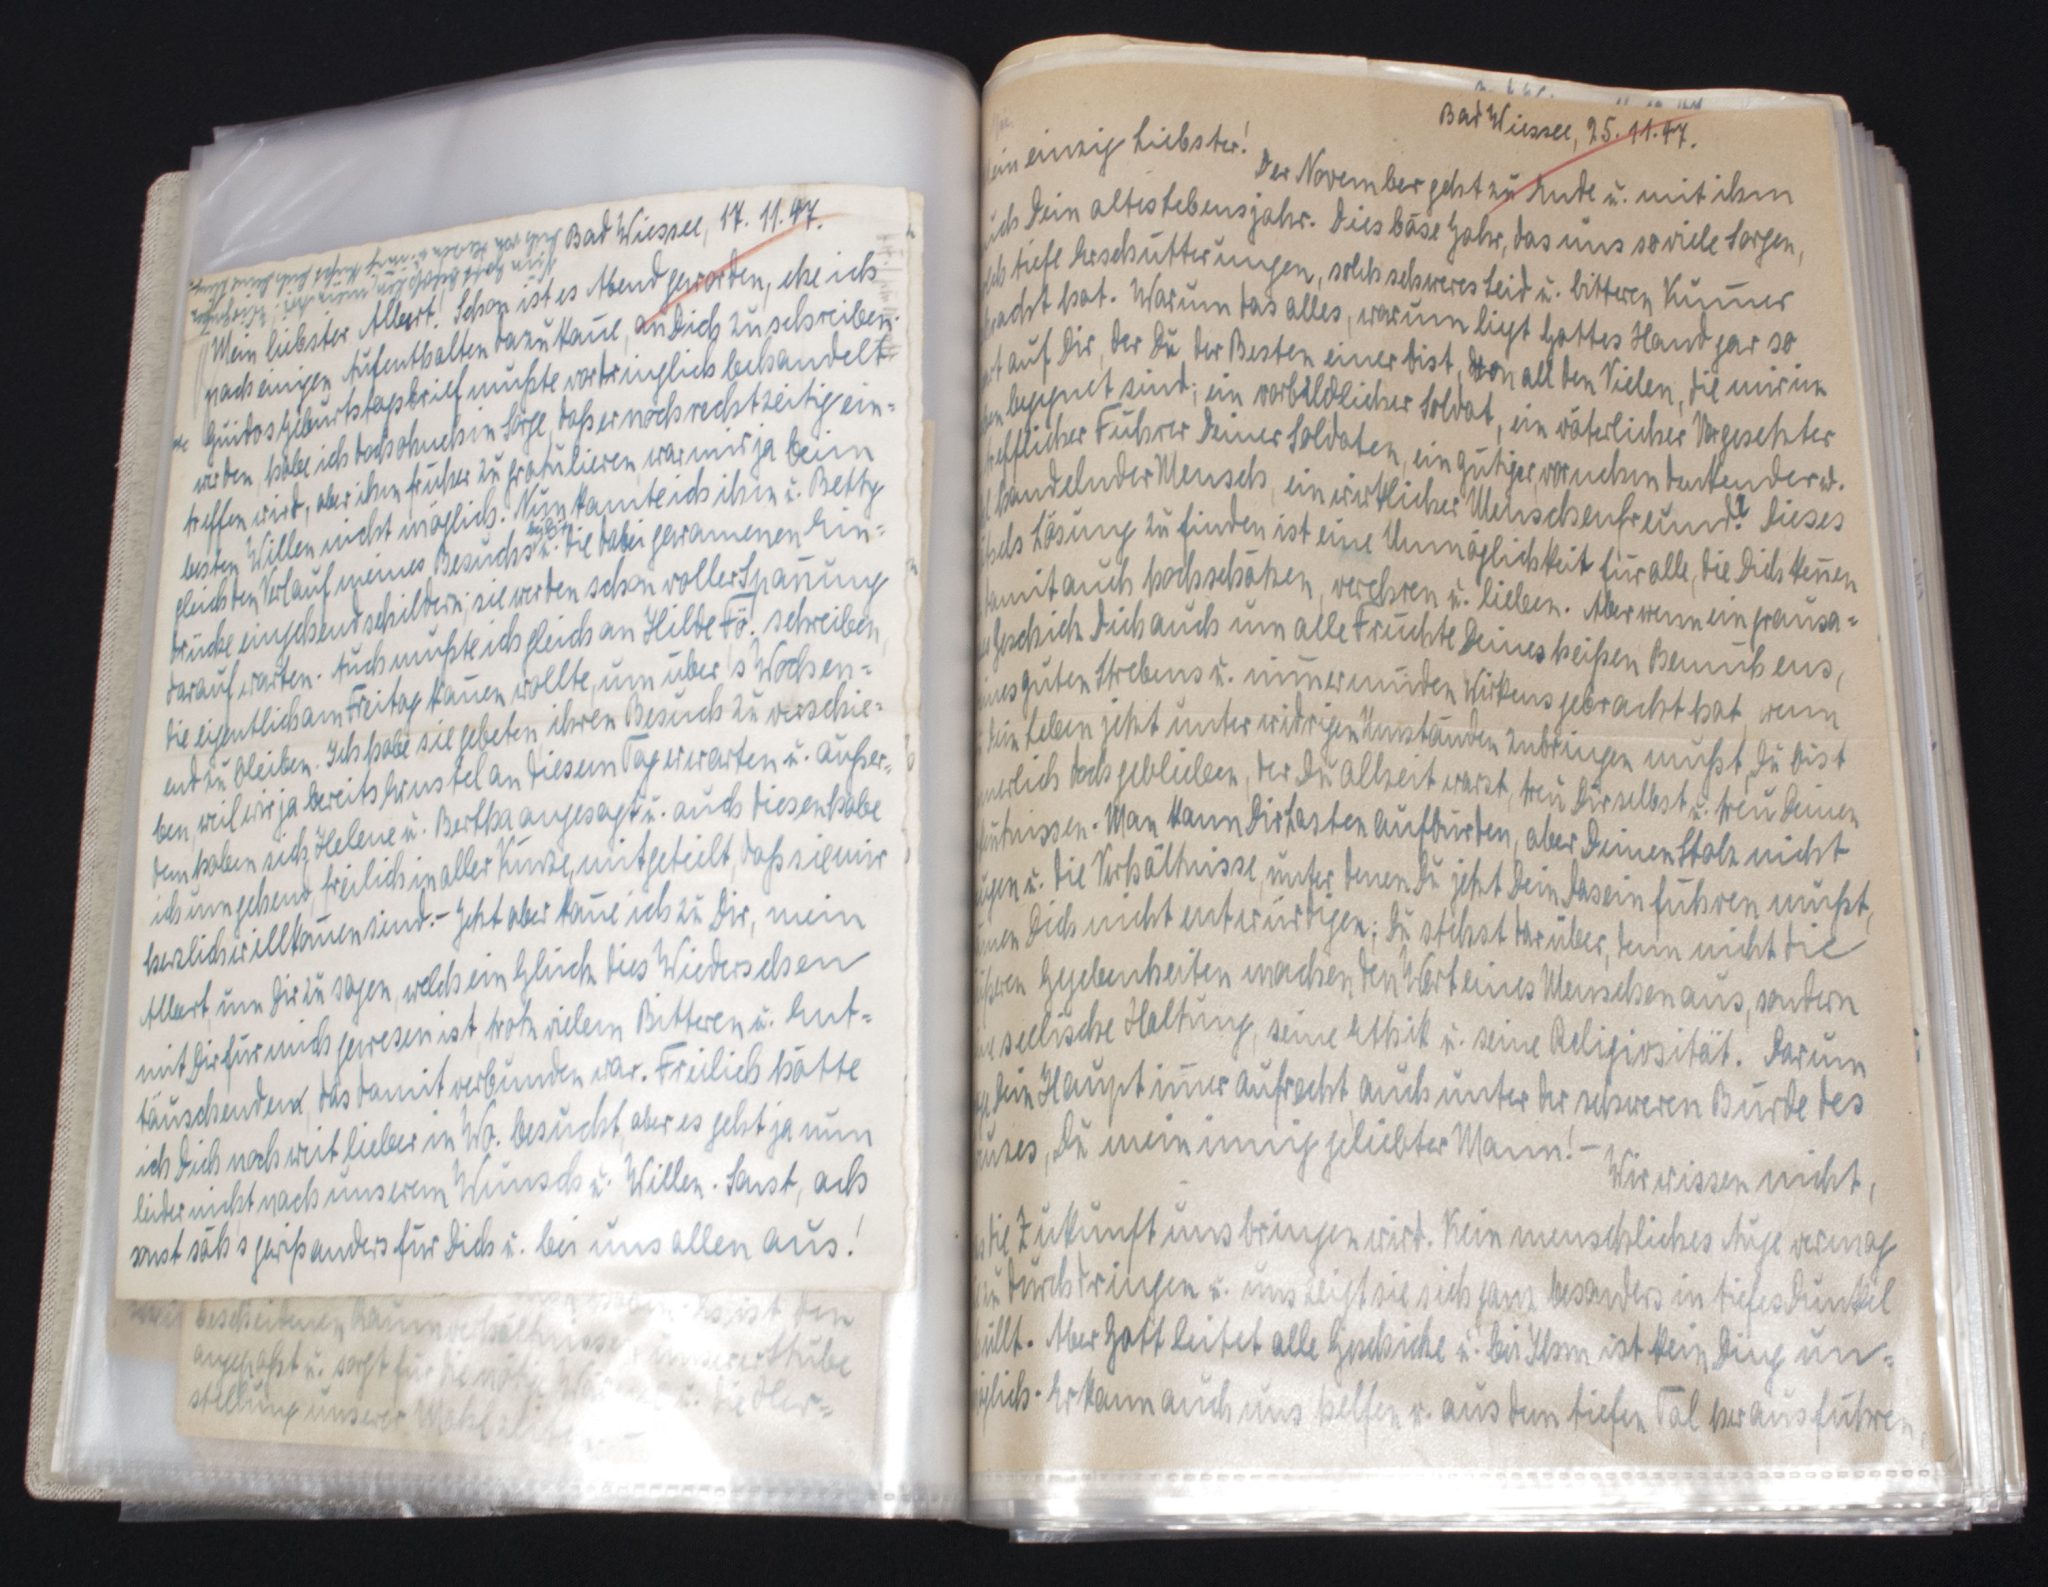 Bad Wiessee, 17. 11. 47.
Mein liebster Albert! Schon ist es Abend geworden, ehe ich
nach einigen Aufenthalten dazu kam̄e, an Dich zu schreiben.
Guidos Geburtstagsbrief mußte vordringlich behandelt
werden, habe ich doch ohnehin Sorge, daß er noch rechtzeitig ein-
treffen wird, aber ihm früher zu gratulieren, war mir ja beim
besten Willen nicht möglich. Nun kon̄te ich ihm u. Betty
gleich den Verlauf meines Besuchs u. die dabei gewonnenen Ein-
drücke eingehend schildern; sie werden schon voller Span̄ung
darauf warten. Auch mußte ich gleich an Hilde Fö. schreiben,
die eigentlich am Freitag kom̄en wollte, um über's Wochen-
end zu bleiben. Ich habe sie gebeten, ihren Besuch zu verschie-
ben, weil wir ja bereits Ernstel an diesem Tag erwarten u. außer-
dem haben sich Helene u. Bertha angesagt u. auch diesen habe
ich umgehend, freilich in aller Kürze, mitgeteilt, daß sie mir
herzlich willkom̄en sind. – Jetzt aber kom̄e ich zu Dir, mein
Albert, um Dir zu sagen, welch ein Glück dies Wiedersehen
mit Dir für mich gewesen ist, trotz vielem Bitteren u. Ent-
täuschenden, das damit verbunden war. Freilich hätte
ich Dich noch weit lieber in Wö. besucht, aber es geht ja nun
leider nicht nach unserem Wunsch u. Willen. Sonst, ach
sonst säh's gewiß anders für Dich u. bei uns allen aus!
bescheidenen Raumverhältnissen unserer Stube
angepaßt u. sorgt für die nötige Wärme u. die Her-
stellung unserer Mahlzeiten
Bad Wiessee, 25. 11. 47.
ein einzig Liebster!
Der November geht zu Ende u. mit ihm
uch Dein altes Lebensjahr. Dies böse Jahr, das uns so viele Sorgen,
lch tiefe Erschütterungen, solch schweres Leid u. bitteren Kum̄er
racht hat. Warum das alles, warum liegt Gottes Hand gar so
auf Dir, der Du der Besten einer bist, von all den Vielen, die mir im
ben begegnet sind; ein vorbildlicher Soldat, ein väterlicher Vorgesetzter
trefflicher Führer Deiner Soldaten, ein gütiger, vornehm denkender u.
l handelnder Mensch, ein wirklicher Menschenfreund? Dieses
tsels Lösung zu finden ist eine Unmöglichkeit für alle, die Dich ken̄en
damit auch hochschätzen, verehren u. lieben. Aber wenn ein grausa-
es Geschick Dich auch um alle Früchte Deines heißen Bemühens,
ines guten Strebens u. nim̄ermüden Wirkens gebracht hat, wenn
Dein Leben jetzt unter widrigen Umständen zubringen mußt, Du bist
nerlich doch geblieben, der Du allzeit warst, treu Dir selbst u. treu Deinen
entnissen. Man kann Dir Lasten aufbürden, aber Deinen Stolz nicht
ugen u. die Verhältnisse, unter denen Du jetzt Dein Dasein führen mußt,
nnen Dich nicht entwürdigen; Du stehst darüber, denn nicht die
ußeren Gegebenheiten machen den Wert eines Menschen aus, sondern
ne seelische Haltung, seine Ethik u. seine Religiosität. Darum
age Dein Haupt im̄er aufrecht auch unter der schweren Bürde des
euzes, Du mein innig geliebter Mann! –
Wir wissen nicht,
s die Zukunft uns bringen wird. Kein menschliches Auge vermag
zu durchdringen u. uns zeigt sie sich ganz besonders in tiefes Dunkel
üllt. Aber Gott leitet alle Geschicke u. bei Ihm ist kein Ding un-
glich. Er kann auch uns helfen u. aus dem tiefen Tal herausführen,